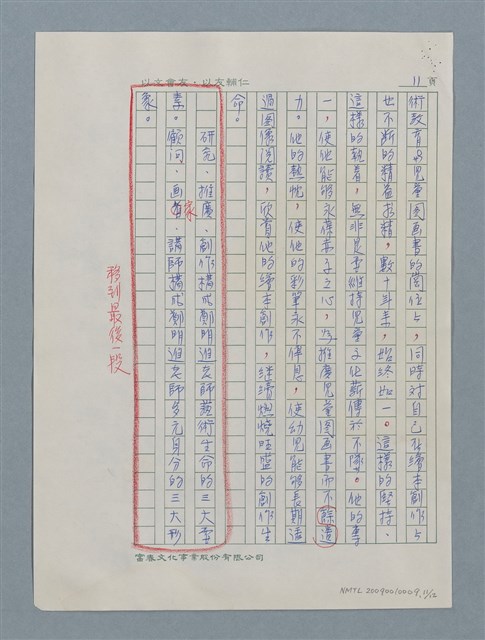 以文會友·以友輔仁
11頁
術教育及兒童圖画書的崗位上，同時對自己在繪本創作上
也不斷的精益求精，數十年來，始終如一。這樣的堅持、
這樣的執着，無非是要維持兒童文化薪傳於不墜。他的專
一，使他能夠永葆赤子之心，為推廣兒童图画書而不餘遺
力。他的熱忱，使他的彩筆永不停息，使幼兒能夠長期透
過图像閱讀，欣賞他的繪本創作，繼續燃燒旺盛的創作生
命。
研究、推廣、創作構成鄭明進老師藝術生命的三大要
素。顧問、画家、講師構成鄭明進老師多元身分的三大形
象。
移到最後一段
富春文化事業股份有限公司
NMTL 20090010009, 11/12